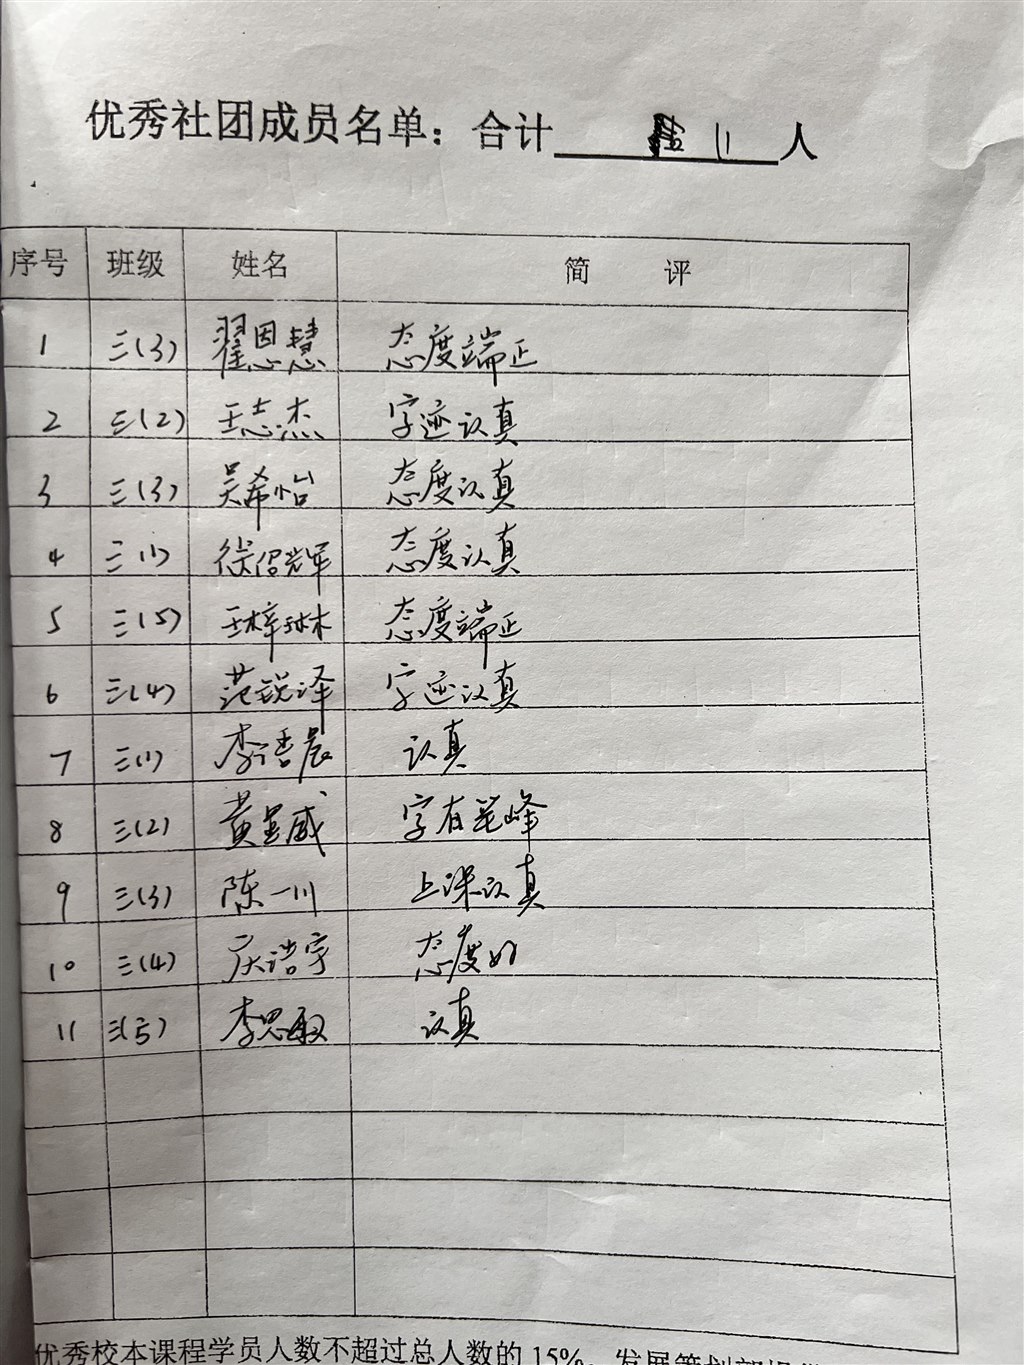 优秀社团成员名单：合计 11 人
序号 班级 姓名 简 评
1 三(3) 翟恩慧 态度端正
2 三(2) 王志杰 字迹认真
3 三(3) 吴希怡 态度认真
4 三(1) 徐绍辉 态度认真
5 三(5) 王梓琳 态度端正
6 三(4) 范锐泽 字迹认真
7 三(1) 李语晨 认真
8 三(2) 黄昱威 字有笔峰
9 三(3) 陈一川 上课认真
10 三(4) 浩宇 态度好
11 三(5) 李思 认真
优秀校本课程学员人数不超过总人数的 15%。发展策划部